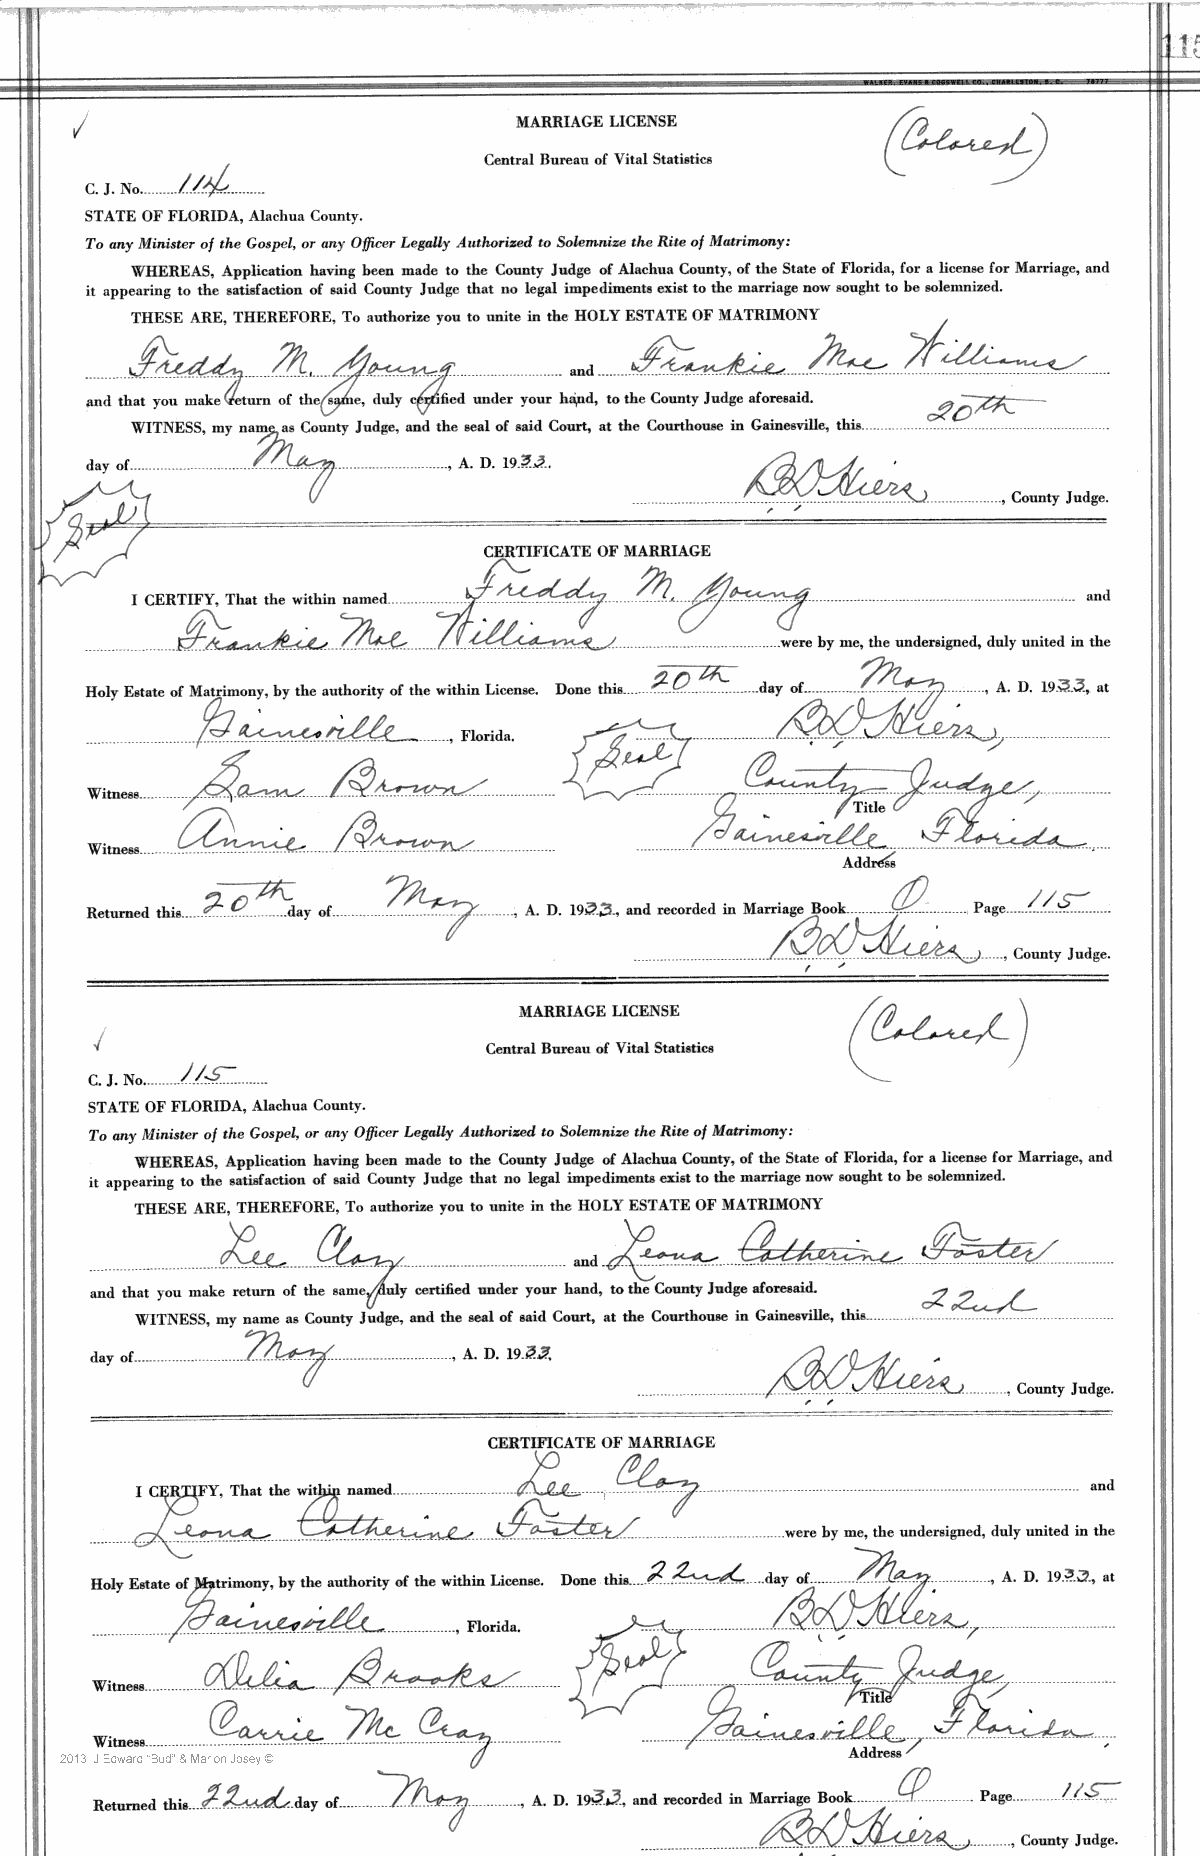 115
WALKER, EVANS & COGSWELL CO., CHARLESTON, S. C. 78777
MARRIAGE LICENSE
(Colored)
Central Bureau of Vital Statistics
C. J. No. 114
STATE OF FLORIDA, Alachua County.
To any Minister of the Gospel, or any Officer Legally Authorized to Solemnize the Rite of Matrimony:
WHEREAS, Application having been made to the County Judge of Alachua County, of the State of Florida, for a license for Marriage, and
it appearing to the satisfaction of said County Judge that no legal impediments exist to the marriage now sought to be solemnized.
THESE ARE, THEREFORE, To authorize you to unite in the HOLY ESTATE OF MATRIMONY
Freddy M. Young and Frankie Mae Williams
and that you make return of the same, duly certified under your hand, to the County Judge aforesaid.
WITNESS, my name as County Judge, and the seal of said Court, at the Courthouse in Gainesville, this 20th
day of May, A. D. 1933.
B D Hiers, County Judge.
Seal
CERTIFICATE OF MARRIAGE
I CERTIFY, That the within named Freddy M. Young and
Frankie Mae Williams were by me, the undersigned, duly united in the
Holy Estate of Matrimony, by the authority of the within License. Done this 20th day of May, A. D. 1933, at
Gainesville, Florida. Seal B D Hiers,
Witness Sam Brown County Judge,
Title
Witness Annie Brown Gainesville Florida.
Address
Returned this 20th day of May, A. D. 1933, and recorded in Marriage Book O Page 115
B D Hiers, County Judge.
MARRIAGE LICENSE
(Colored)
Central Bureau of Vital Statistics
C. J. No. 115
STATE OF FLORIDA, Alachua County.
To any Minister of the Gospel, or any Officer Legally Authorized to Solemnize the Rite of Matrimony:
WHEREAS, Application having been made to the County Judge of Alachua County, of the State of Florida, for a license for Marriage, and
it appearing to the satisfaction of said County Judge that no legal impediments exist to the marriage now sought to be solemnized.
THESE ARE, THEREFORE, To authorize you to unite in the HOLY ESTATE OF MATRIMONY
Lee Clay and Leona Catherine Foster
and that you make return of the same, duly certified under your hand, to the County Judge aforesaid.
WITNESS, my name as County Judge, and the seal of said Court, at the Courthouse in Gainesville, this 22nd
day of May, A. D. 1933.
B D Hiers, County Judge.
CERTIFICATE OF MARRIAGE
I CERTIFY, That the within named Lee Clay and
Leona Catherine Foster were by me, the undersigned, duly united in the
Holy Estate of Matrimony, by the authority of the within License. Done this 22nd day of May, A. D. 1933, at
Gainesville, Florida. Seal B D Hiers,
Witness Delia Brooks County Judge,
Title
Witness Carrie McCray Gainesville, Florida.
2013 J Edward "Bud" & Marion Josey © Address
Returned this 22nd day of May, A. D. 1933, and recorded in Marriage Book O Page 115
B D Hiers, County Judge.